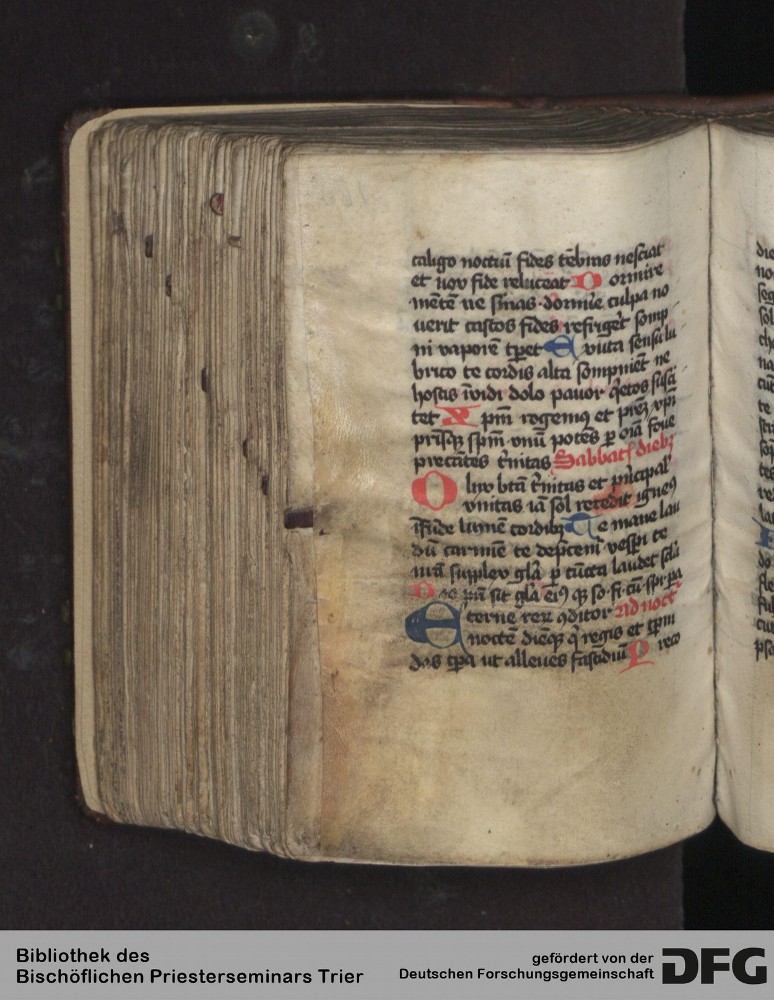 caligo noctiū fides tēbris nesciat
et nox fide reluceat D ormire
mētē ne sinas dormire culpa no
uerit castos fides refrigerēt somp
ni vaporē tp̄et E xuta sensu lu
brico te cordis alta sompniēt ne
hostis īvidi dolo pavor q̇etos susci
tet X pm̄ rogemꝯ et prēz xpī
prīsqꝫ spm̄ vnū potēs ꝑ oīa foue
precātes tⁱnitas Sabbatis diebꝫ
O lux btā tⁱnitas et pⁱncipal
vnitas iā sol recedit igneꝯ
īfūde lumē cordibꝫ T e mane lau
dū carmīe te dep̄cem̄ vesp̄i te
nr̄a supplex gl̄a ꝑ cūcta laudet scl̄a
D eo pr̄i sit gl̄a eiꝯ qꝫ so fi cū spi pa
E terne rex ꝯditor ad noct
noctē diēqꝫ q̄ regis et tp̄m
das tp̄a ut alleues fastidiū P reco
Bibliothek des
Bischöflichen Priesterseminars Trier
gefördert von der
Deutschen Forschungsgemeinschaft DFG